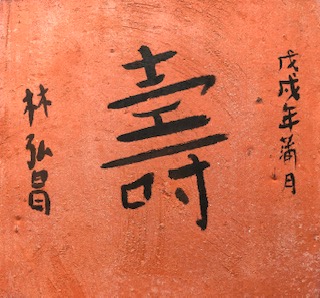 戊戌年蒲月
壽
林弘昌